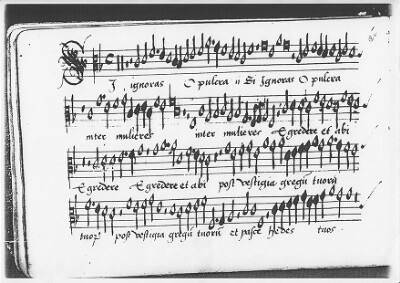 I ignoras O pulcra ıı Si Ignoras O pulcra
inter mulieres inter mulieres Egredere et abi
Egredere Egredere et abi post vestigia gregū tuorū
tuorū post vestigia gregū tuorū et pasce Hedos tuos